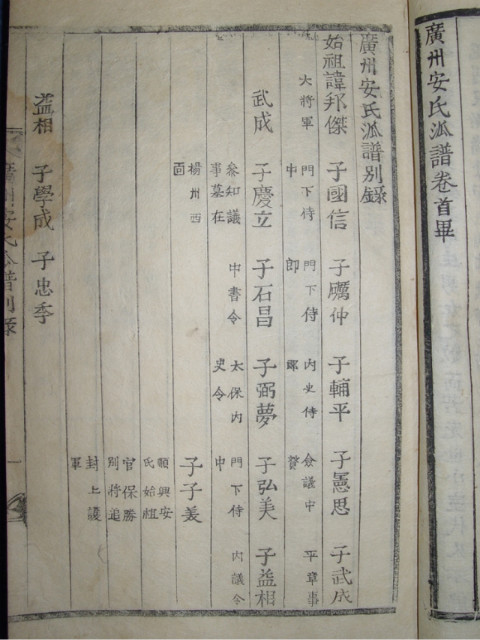 廣州安氏派譜卷首畢
廣州安氏派譜別錄
始祖諱邦傑 子國信 子厲仲 子輔平 子憲思 子武成
大將軍 門下侍中 門下侍郎 內史侍郎 僉議中贊 平章事
武成 子慶立 子石昌 子弼夢 子弘美 子益相
叅知議事墓在楊州西面 中書令 太保內史令 門下侍中 內議令
子子美
順興安氏始祖官保勝別將追封上護軍
益相 子學成 子忠季